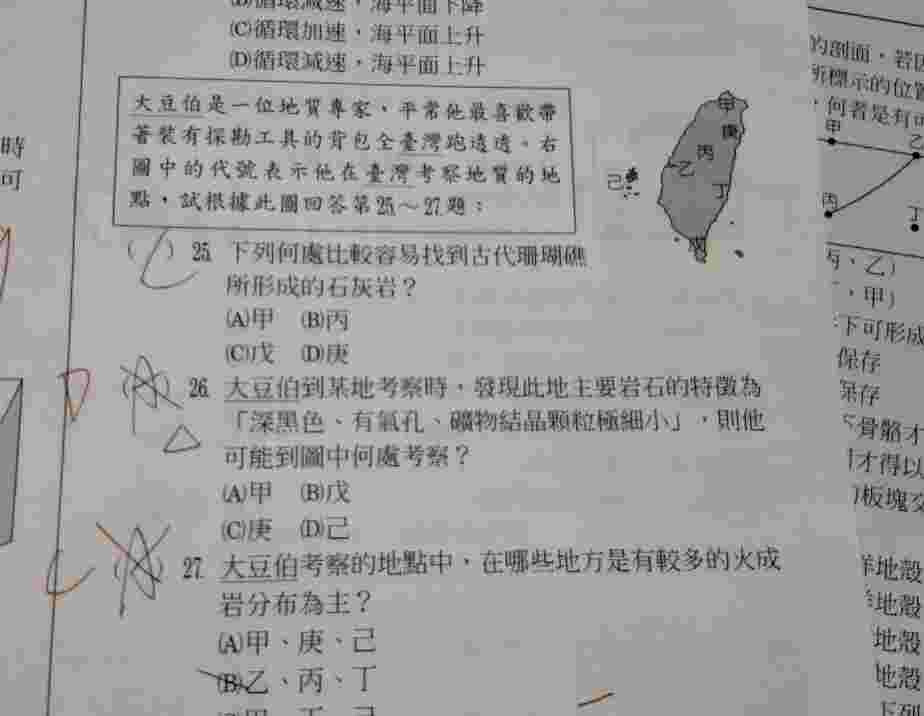 循環減速，海平面下降
(C)循環加速，海平面上升
(D)循環減速，海平面上升
大豆伯是一位地質專家，平常他最喜歡帶
著裝有探勘工具的背包全臺灣跑透透。右
圖中的代號表示他在臺灣考察地質的地
點，試根據此圖回答第25～27題：
甲
庚
丙
乙
丁
己
戊
( C ) 25. 下列何處比較容易找到古代珊瑚礁
所形成的石灰岩？
(A)甲 (B)丙
(C)戊 (D)庚
D
26. 大豆伯到某地考察時，發現此地主要岩石的特徵為
「深黑色、有氣孔、礦物結晶顆粒極細小」，則他
可能到圖中何處考察？
(A)甲 (B)戊
(C)庚 (D)己
C
27. 大豆伯考察的地點中，在哪些地方是有較多的火成
岩分布為主？
(A)甲、庚、己
(B)乙、丙、丁
時
可
的剖面，若
所標示的位置
，何者是有可
甲
乙
丙
丁
丙、乙）
、甲）
下可形成
保存
保存
骨骼才
才得以
板塊交
洋地殼
地殼
地殼
地殼
下列